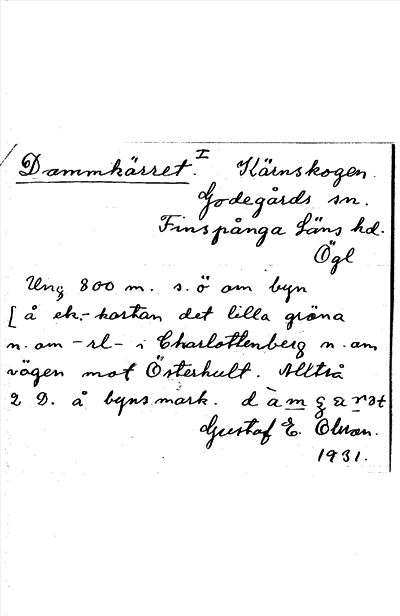 Dammkärret. I Kärnskogen.
Godegårds sn.
Finspånga Läns hd.
Ögl
Ung 800 m. s.ö om byn
[ å ek.-kartan det lilla gröna
n. om -rl- i Charlottenberg n. om
vägen mot Österhult. Alltså
2 D. å byns mark.
Gustaf E. Olson.
1931.